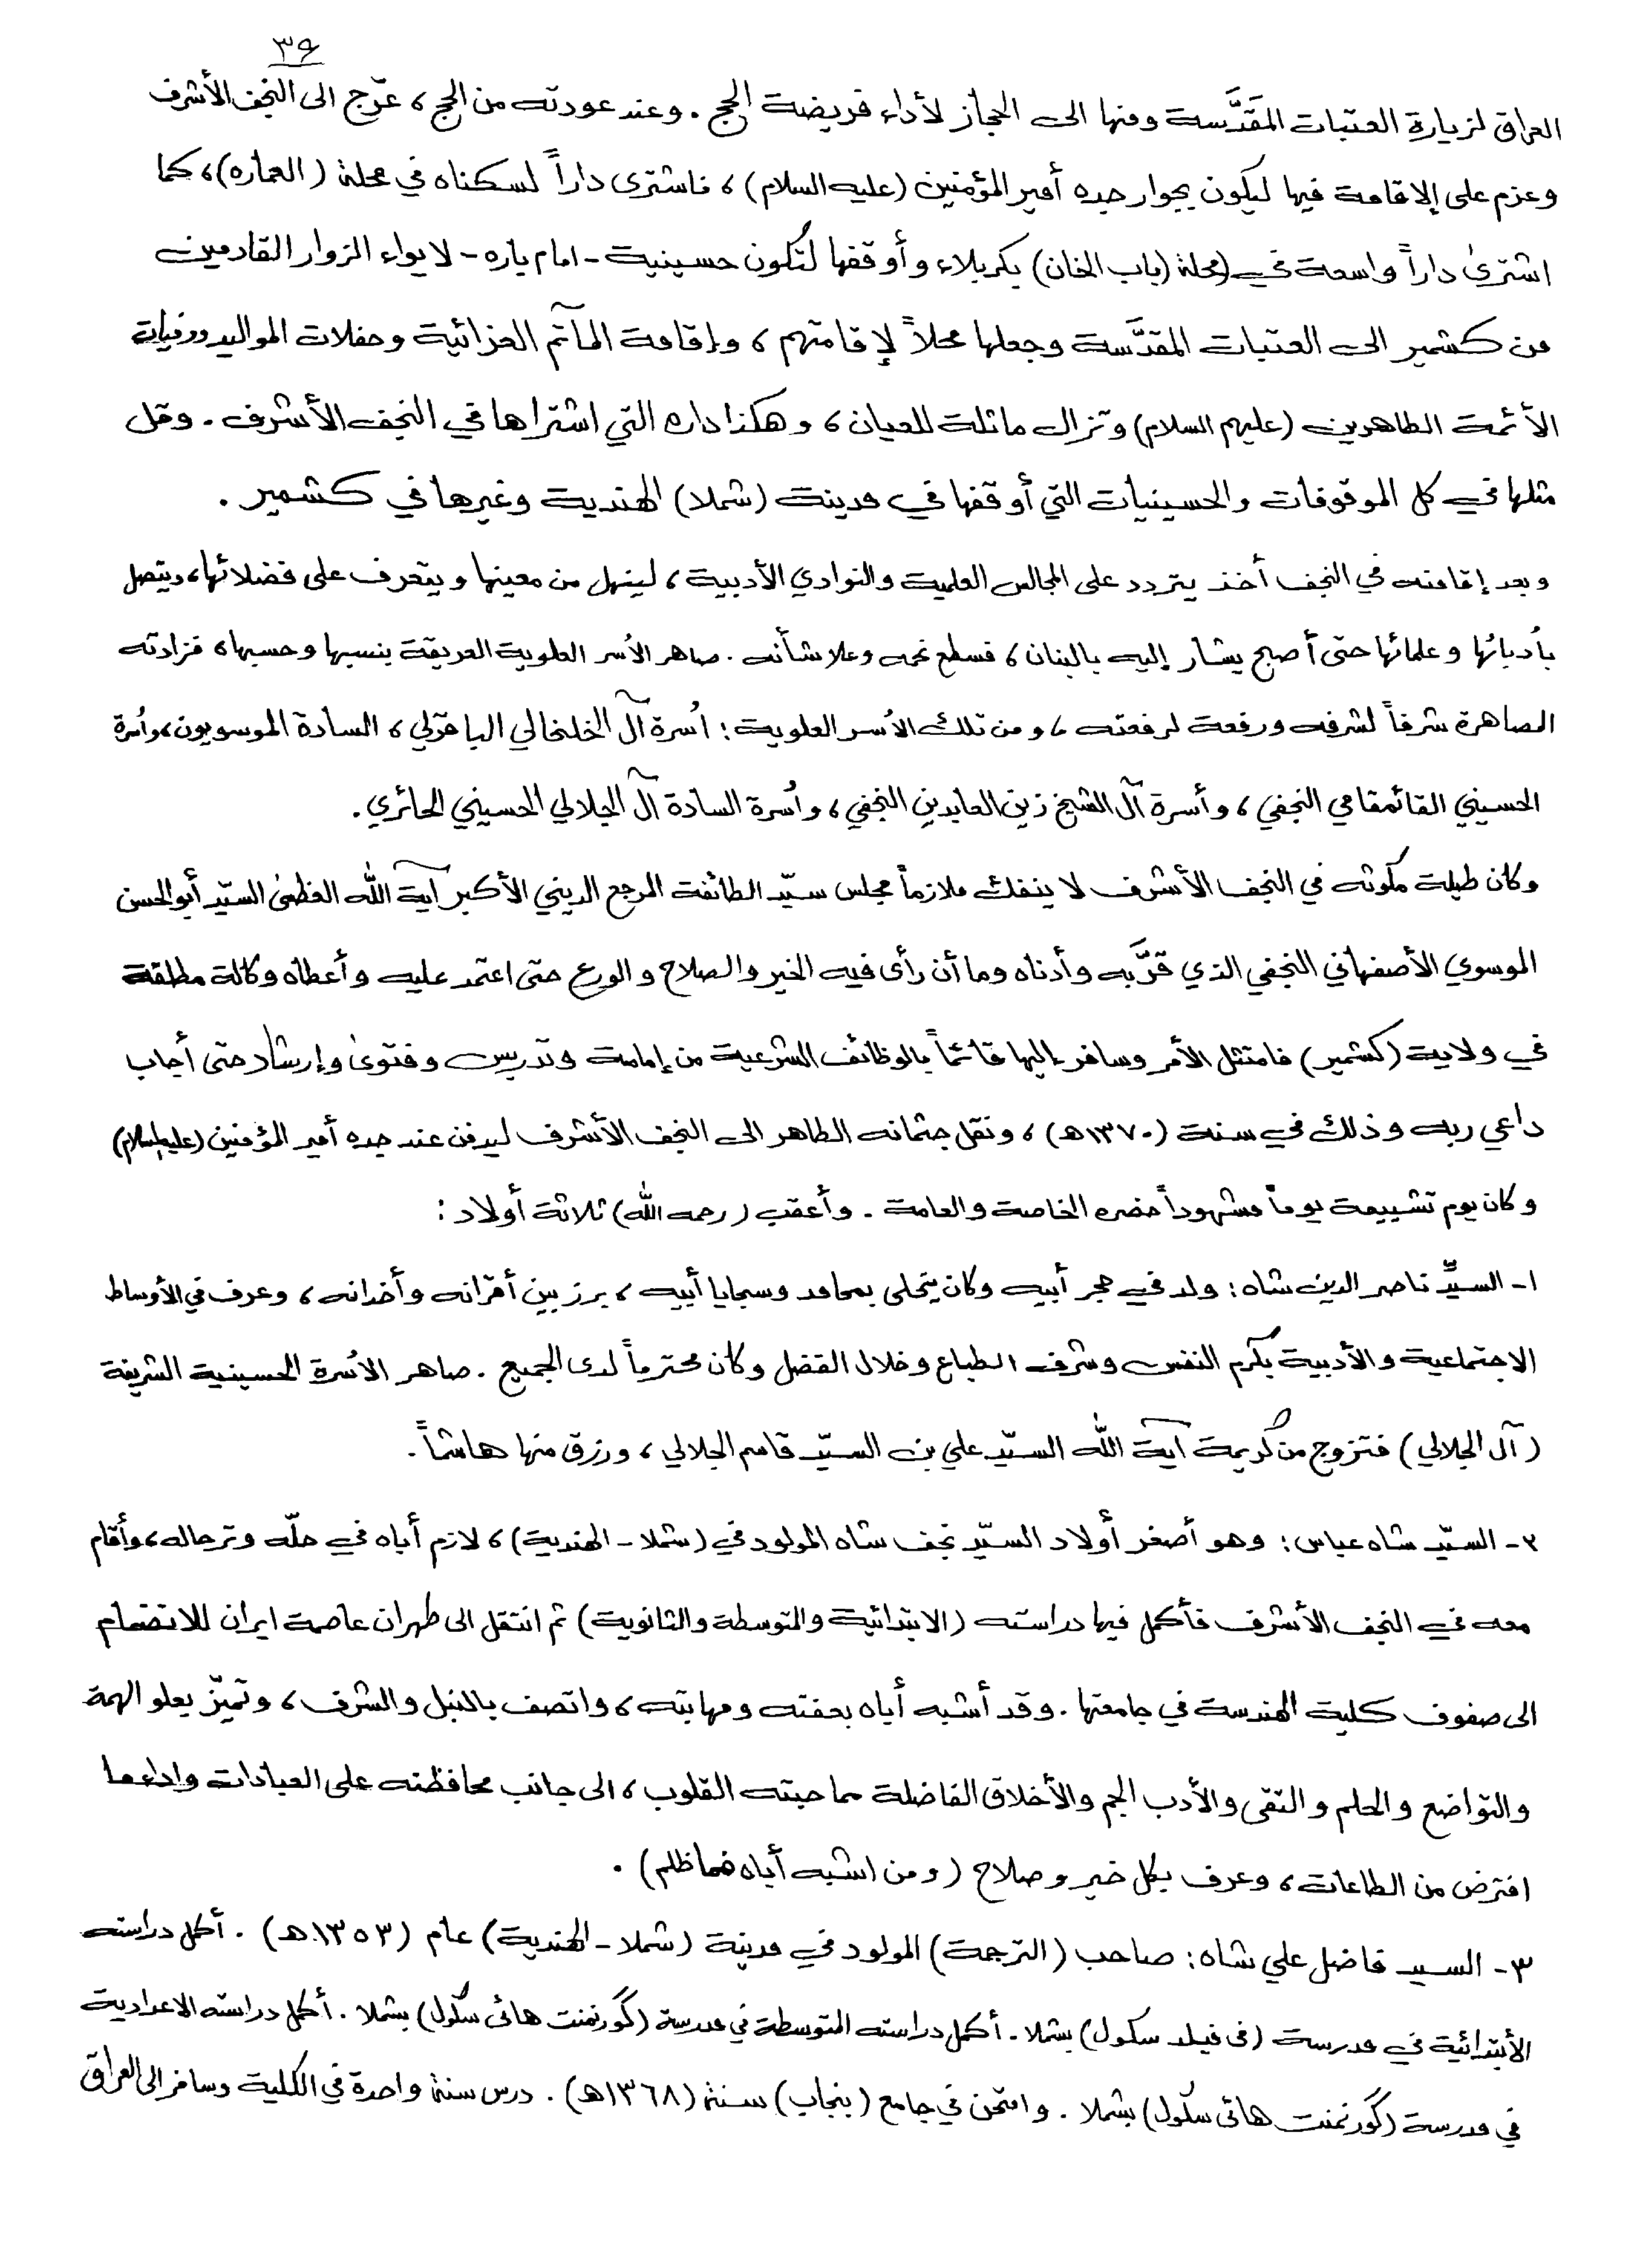 ٣٩
العراق لزيارة العتبات المقَدَّسة ومنها الى الحجاز لأداء فريضة الحج . وعند عودته من الحج ، عرّج الى النجف الأشرف
وعزم على الاقامة فيها ليكون بجوار جده أمير المؤمنين (عليه السلام) ، فاشترى داراً لسكناه في محلة (العماره) ، كما
اشترىٰ داراً واسعة في (محلة (باب الخان) بكربلاء وأوقفها لتكون حسينية - امام باره - لايواء الزوار القادمين
من كشمير الى العتبات المقدَّسة وجعلها محلاً لإقامتهم ، وإقامة المآتم العزائية وحفلات المواليد ووفيات
الأئمة الطاهرين (عليهم السلام) وتزال ماثلة للعيان ، وهكذا داره التي اشتراها في النجف الأشرف . وقل
مثلها في كل الموقوفات والحسينيات التي أوقفها في مدينة (شملا) الهندية وغيرها في كشمير .
وبعد إقامته في النجف أخذ يتردد على المجالس العلمية والنوادي الأدبية ، لينهل من معينها ويتعرف على فضلائها ، ويتصل
بأدبائها وعلمائها حتى أصبح يشار إليه بالبنان ، فسطع نجمه وعلا شأنه . صاهر الأسر العلوية العريقة بنسبها وحسبها ، فزادته
المصاهرة شرفاً لشرفه ورفعة لرفعته ، ومن تلك الاُسر العلوية : اُسرة آل الخلخالي الباغزلي ، السادة الموسويون ، واُسرة
الحسيني القائمقامي النجفي ، وأسرة آل الشيخ زين العابدين النجفي ، واُسرة السادة آل الجلالي الحسيني الحائري .
وكان طيلة مكوثه في النجف الأشرف لا ينفك ملازماً مجلس سيّد الطائفة المرجع الديني الأكبر آية الله العظمىٰ السيّد أبو الحسن
الموسوي الأصفهاني النجفي الذي قرَّبه وأدناه وما أن رأى فيه الخير والصلاح والورع حتى اعتمد عليه وأعطاه وكالة مطلقة
في ولاية (كشمير) فامتثل الأمر وسافر إليها قائماً بالوظائف الشرعية من إمامة وتدريس وفتوىٰ وإرشاد حتى أجاب
داعي ربه وذلك في سنة (١٣٧٠هـ) ، ونقل جثمانه الطاهر الى النجف الأشرف ليدفن عند جده أمير المؤمنين (عليه السلام)
وكان يوم تشييعة يوماً مشهوداً حضره الخاصة والعامة . وأعقب (رحمه الله) ثلاثة أولاد :
١- السيّد ناصر الدين شاه : ولد في حجر أبيه وكان يتحلى بمحامد وسجايا أبيه ، برز بين أقرانه وأخدانه ، وعرف في الأوساط
الاجتماعية والأدبية بكرم النفس وشرف الطباع وخلال الفضل وكان محترماً لدى الجميع . صاهر الاُسرة الحسينية الشريفة
(آل الجلالي) فتزوج من كريمة آية الله السيّد علي بن السيّد قاسم الجلالي ، ورزق منها هاشماً .
٢- السيّد شاه عباس : وهو أصغر أولاد السيّد نجف شاه المولود في (شملا - الهندية) ، لازم أباه في حلّه وترحاله ، وأقام
معه في النجف الأشرف فأكمل فيها دراسته (الابتدائية والمتوسطة والثانوية) ثم انتقل الى طهران عاصمة ايران للانضمام
الى صفوف كلية الهندسة في جامعتها . وقد أشبه أباه بعفته ومهابته ، واتصف بالنبل والشرف ، وتميّز بعلو الهمة
والتواضع والحلم والتقى والأدب الجم والأخلاق الفاضلة مما حببته القلوب ، الى جانب محافظته على العبادات واداء ما
افترض من الطاعات ، وعرف بكل خير وصلاح (ومن اشبه أباه فما ظلم) .
٣- السيد فاضل علي شاه : صاحب (الترجمة) المولود في مدينة (شملا - الهندية) عام (١٣٥٣هـ) . أكمل دراسته
الأبتدائية في مدرسة (فى فيلد سكول) بشملا . أكمل دراسته المتوسطة في مدرسة (گورنمنت هائى سكول) بشملا . أكمل دراسته الاعدادية
في مدرسة (گورنمنت هائى سكول) بشملا . وامتحن في جامع (پنجاب) سنة (١٣٦٨هـ) . درس سنة واحدة في الكلية وسافر الى العراق